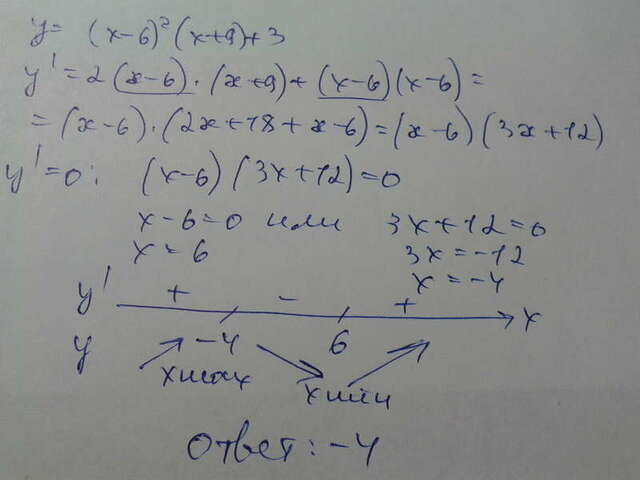 y = (x-6)²(x+9)+3
y' = 2(x-6)·(x+9)+(x-6)(x-6)=
=(x-6)·(2x+18+x-6)=(x-6)(3x+12)
y'=0: (x-6)(3x+12)=0
x-6=0 или 3x+12=0
x=6 3x=-12
x=-4
y' + - + x
y -4 6
xmax xmin
Ответ: -4